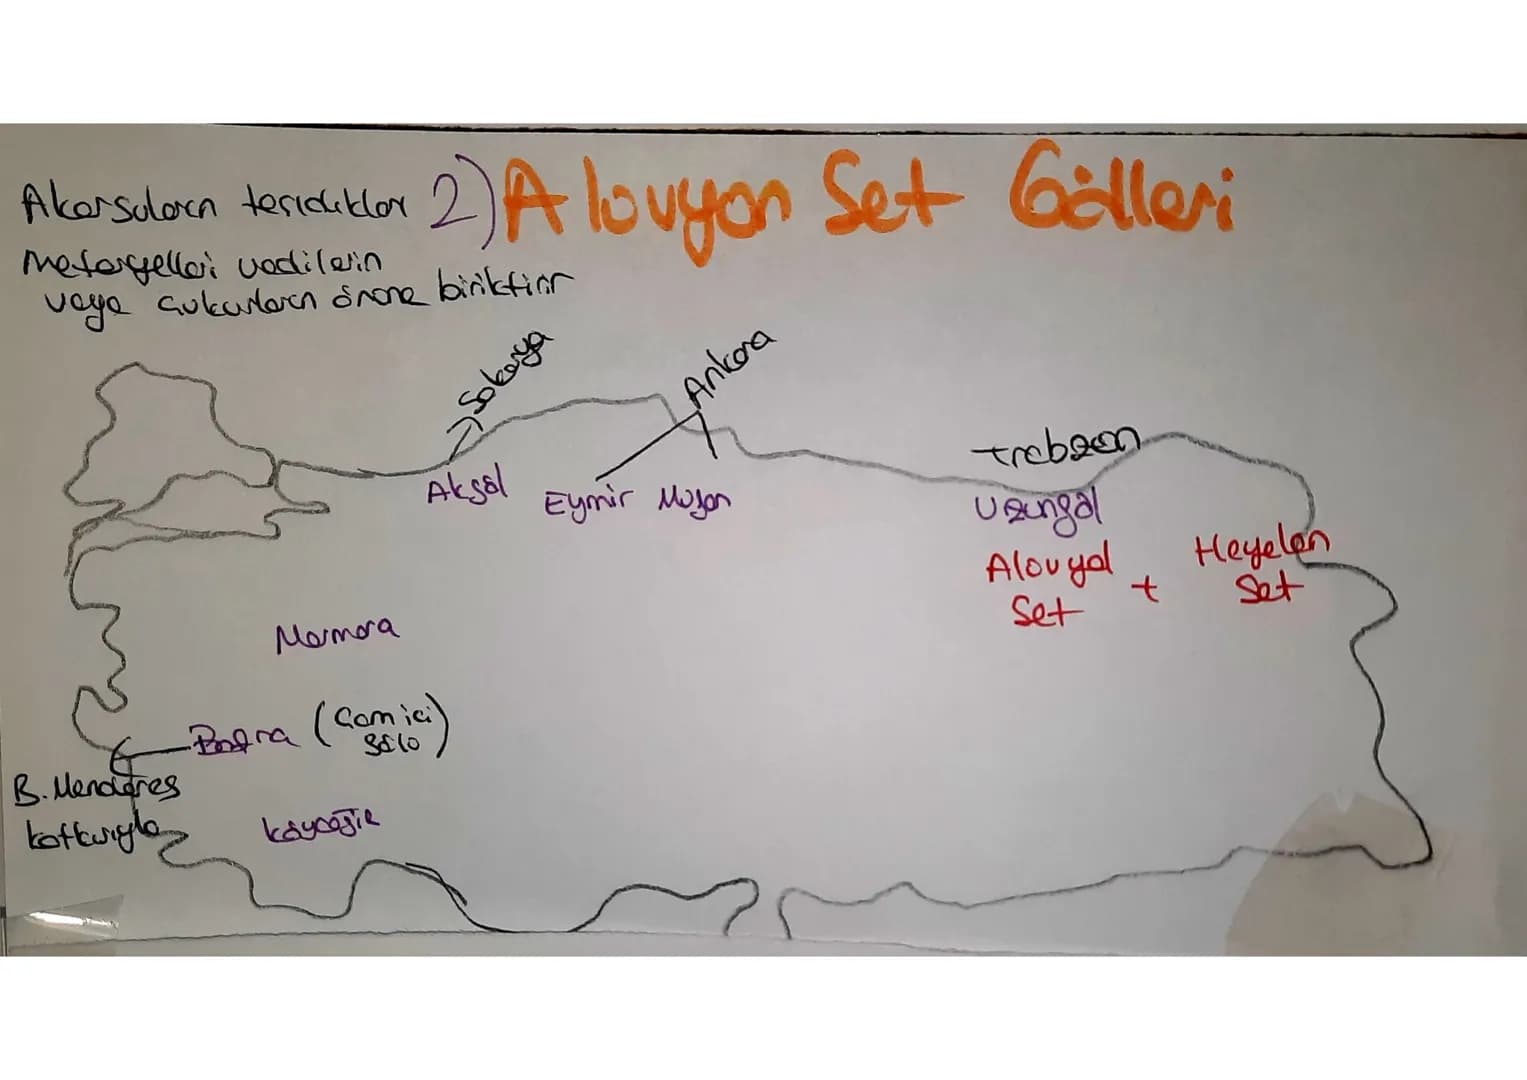 2) Alüvyon Set Gölleri
Akarsuların taşıdıkları
materyalleri vadilerin
veya çukurların önüne biriktirir
Sakarya
Ankara
Trabzon
Akgöl
Eymir Mogan
Uzungöl
Alüvyal + Heyelan
Set Set
Marmara
Bafra (Çamiçi
gölü)
B. Menderes
köyceğiz